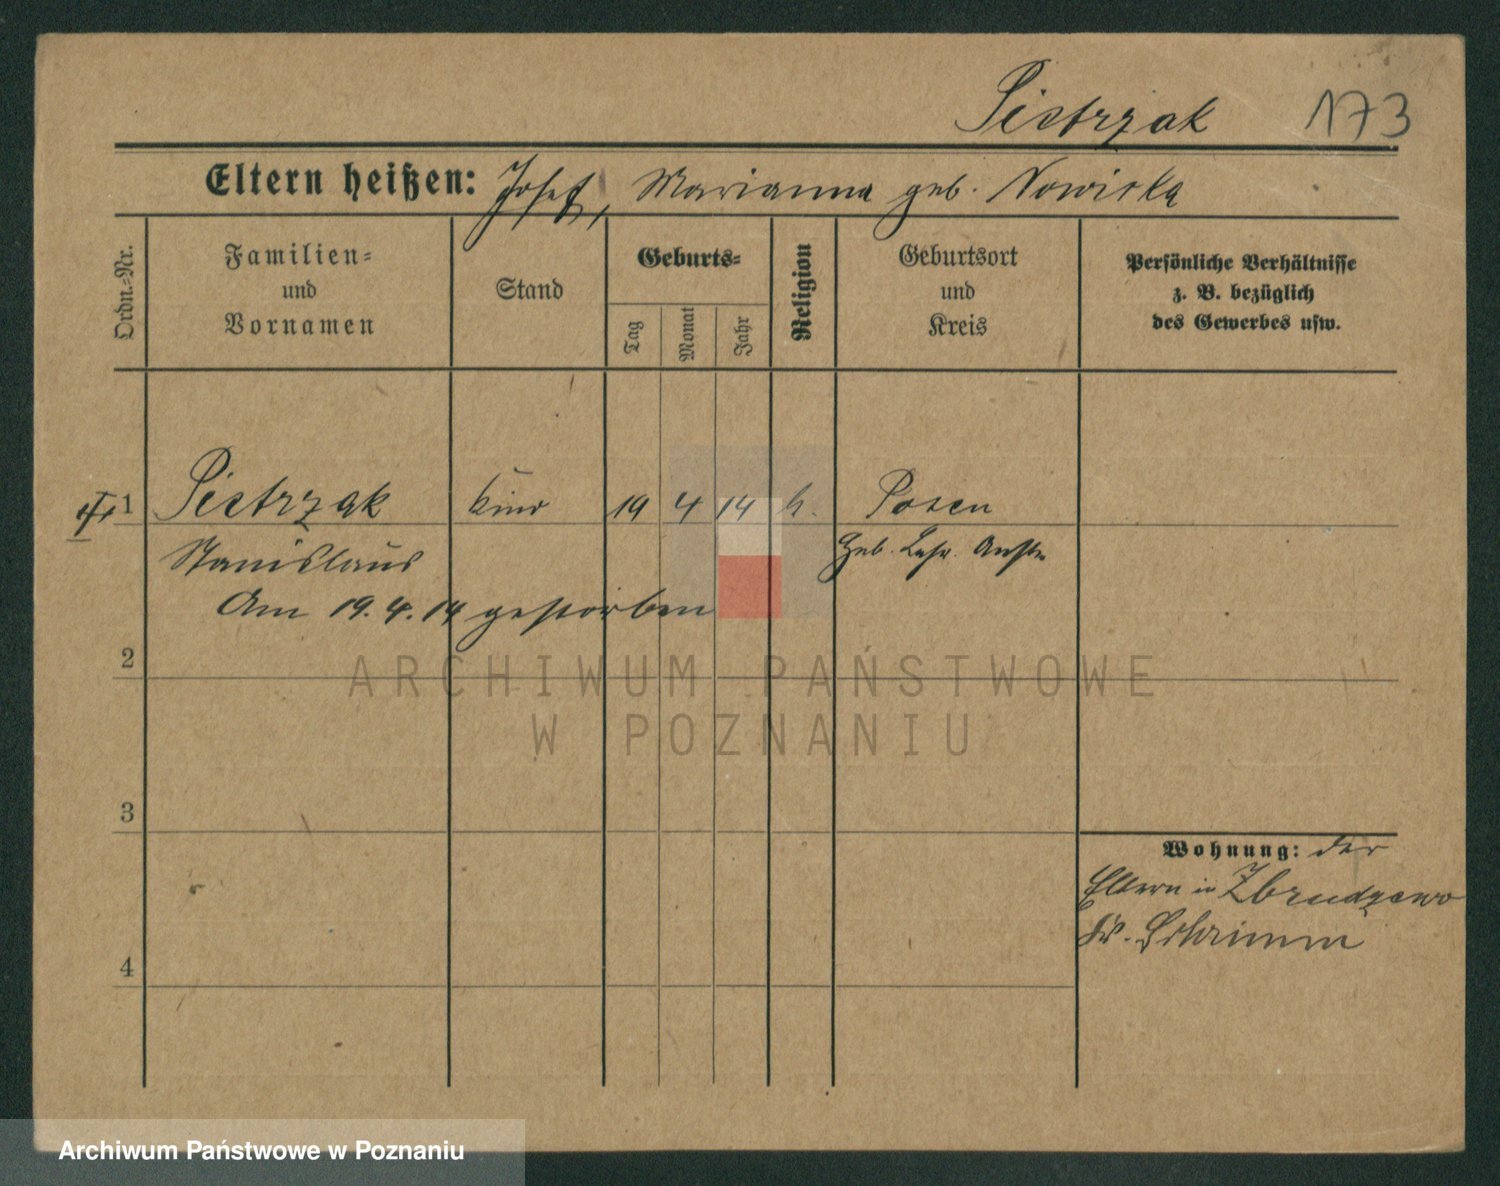 Pietrzak 173
Eltern heißen: Josef, Marianna geb. Nowicka
Ordn.-Nr.
Familien-
und
Vornamen
Stand
Geburts-
Tag
Monat
Jahr
Religion
Geburtsort
und
Kreis
Persönliche Verhältnisse
z. B. bezüglich
des Gewerbes usw.
1 Pietrzak Kind 19 4 14 k. Posen
Stanislaus Geb. Lehr. Anst.
Am 19.4.14 gestorben
2
ARCHIWUM PAŃSTWOWE
W POZNANIU
3
Wohnung: der
Eltern in Zbrudzewo
Kr. Schrimm
4
Archiwum Państwowe w Poznaniu